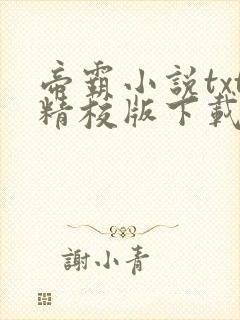 帝霸小説txt
精校版下載
謝小青